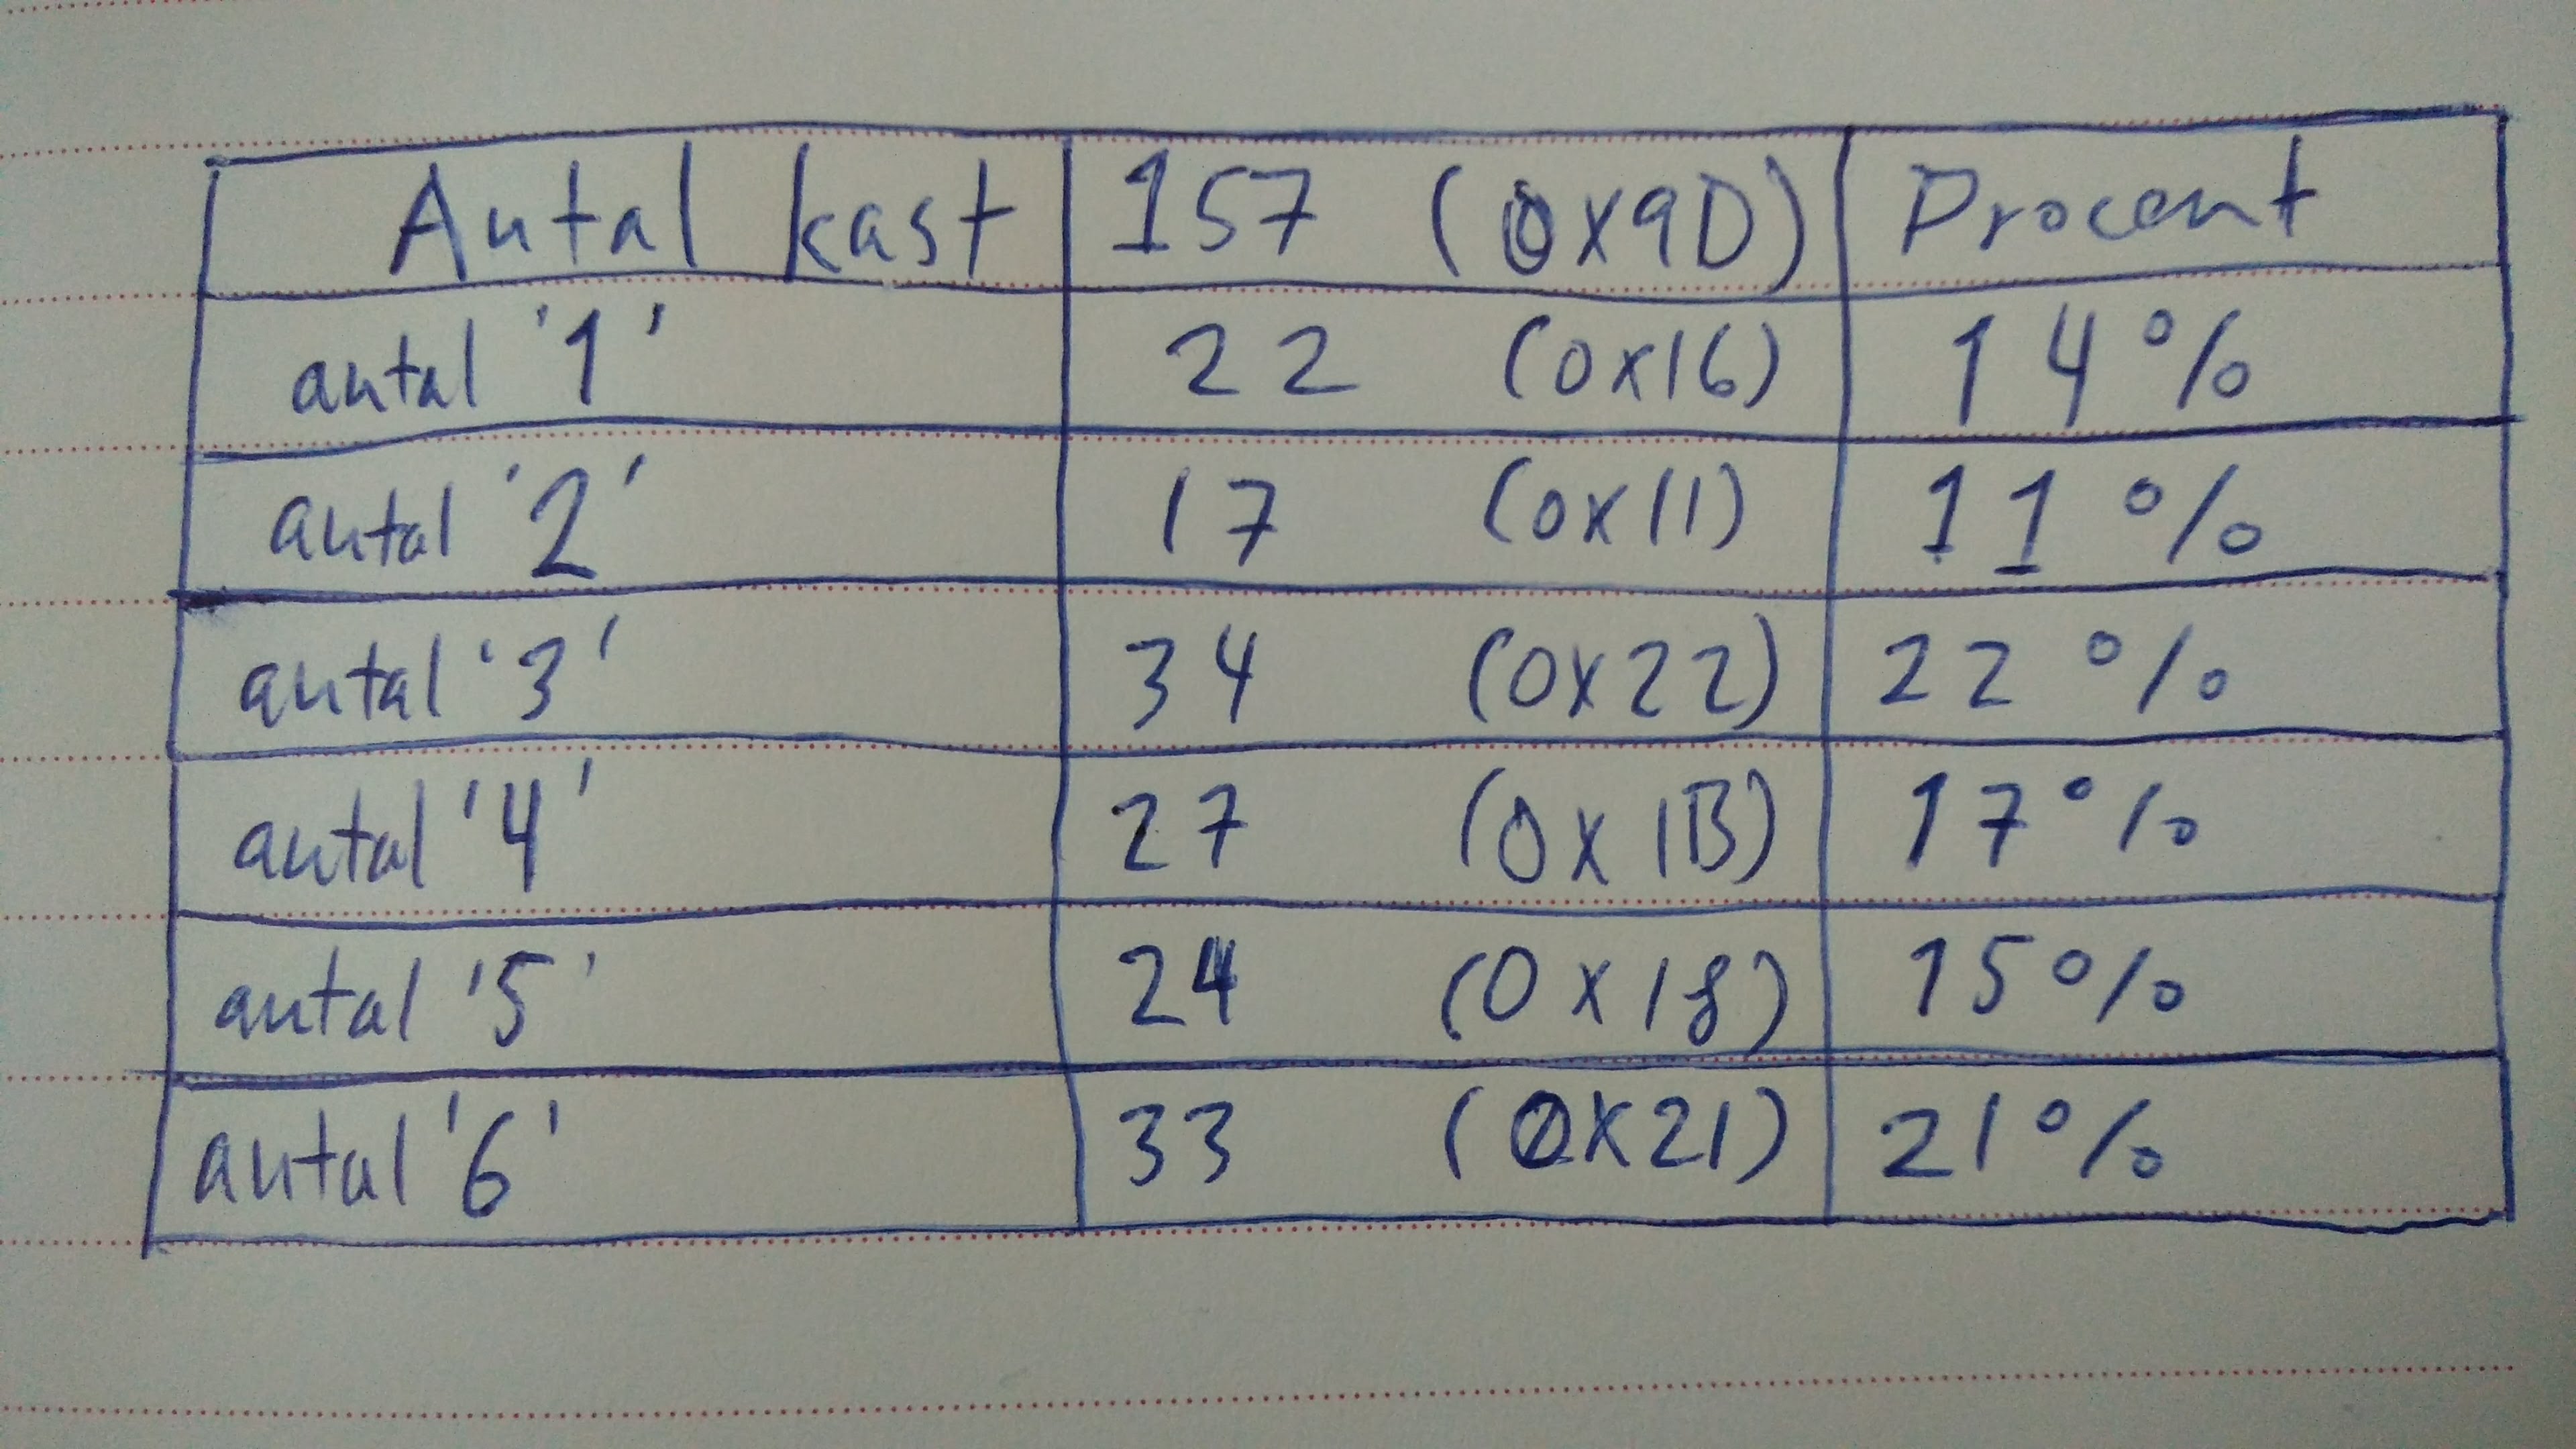 Antal kast 157 (0x9D) Procent
antal '1' 22 (0x16) 14%
antal '2' 17 (0x11) 11%
antal '3' 34 (0x22) 22%
antal '4' 27 (0x1B) 17%
antal '5' 24 (0x18) 15%
antal '6' 33 (0x21) 21%